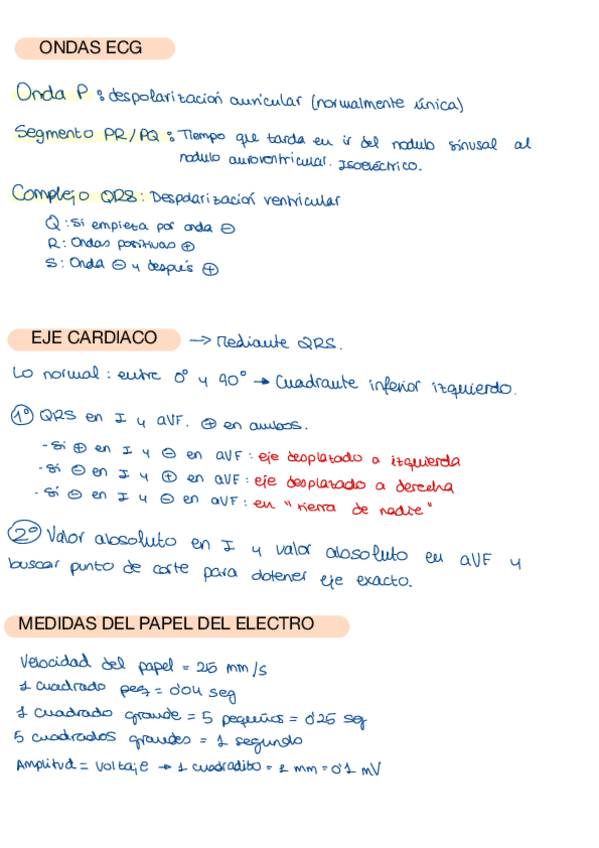 ONDAS ECG
Onda P : despolarización auricular (normalmente única)
Segmento PR/PQ : Tiempo que tarda en ir del nodulo sinusal al
nodulo auroventricular. Isoeléctrico.
Complejo QRS: Despolarización ventricular
Q : Si empieza por onda ⊖
R : Ondas positivas ⊕
S : Onda ⊖ y después ⊕
EJE CARDIACO → Mediante QRS.
Lo normal : entre 0° y 90° → Cuadrante inferior izquierdo.
1º QRS en I y aVF. ⊕ en ambos.
- Si ⊕ en I y ⊖ en aVF : eje desplazado a izquierda
- Si ⊖ en I y ⊕ en aVF : eje desplazado a derecha
- Si ⊖ en I y ⊖ en aVF : en "tierra de nadie"
2º Valor absoluto en I y valor absoluto en aVF y
buscar punto de corte para obtener eje exacto.
MEDIDAS DEL PAPEL DEL ELECTRO
Velocidad del papel = 25 mm/s
1 cuadrado peq = 0'04 seg
1 cuadrado grande = 5 pequeños = 0'25 seg
5 cuadrados grandes = 1 segundo
Amplitud = Voltaje → 1 cuadradito = 1 mm = 0'1 mV